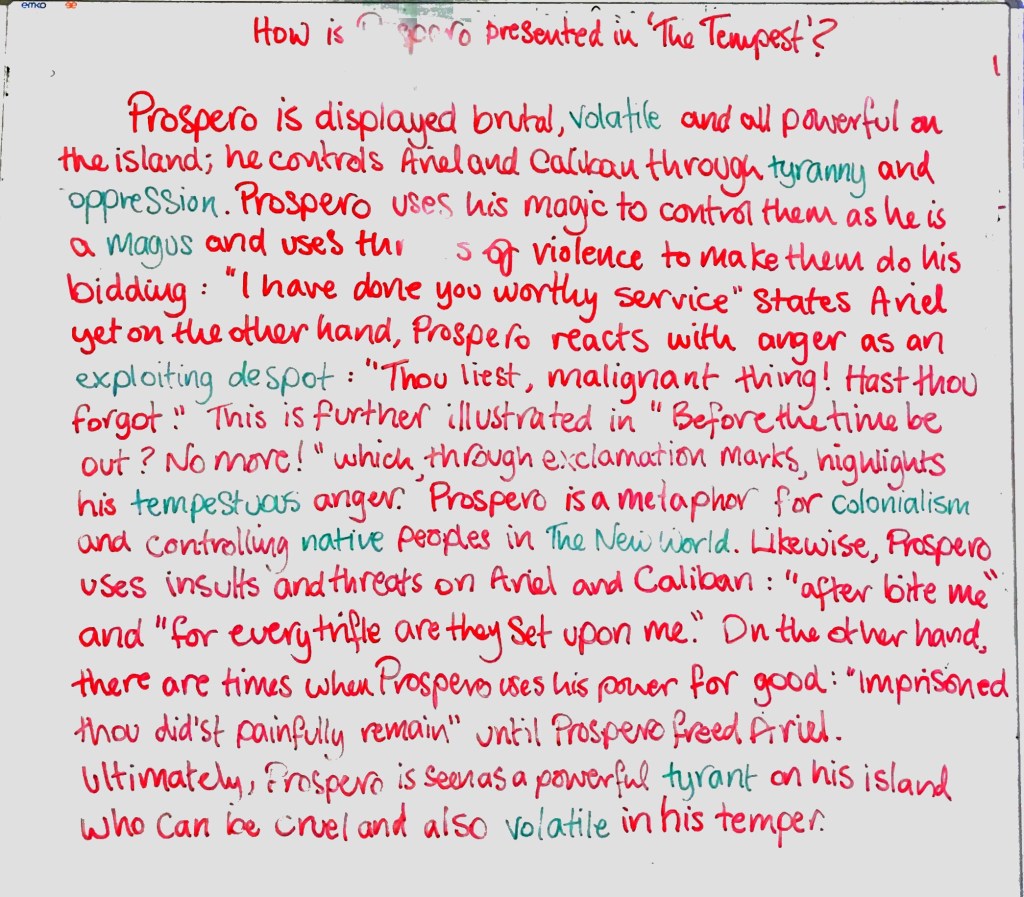 emko
How is presented in 'The Tempest'?
1
Prospero is displayed brutal, volatile and all powerful on
the island; he controls Ariel and Caliban through tyranny and
oppression. Prospero uses his magic to control them as he is
a magus and uses of violence to make them do his
bidding: "I have done you worthy service" states Ariel
yet on the other hand, Prospero reacts with anger as an
exploiting despot: "Thou liest, malignant thing! Hast thou
forgot." This is further illustrated in "Before the time be
out? No more!" which, through exclamation marks, highlights
his tempestuous anger. Prospero is a metaphor for colonialism
and controlling native peoples in The New World. Likewise, Prospero
uses insults and threats on Ariel and Caliban: "after bite me"
and "for every trifle are they set upon me." On the other hand,
there are times when Prospero uses his power for good: "Imprisoned
thou did'st painfully remain" until Prospero freed Ariel.
Ultimately, Prospero is seen as a powerful tyrant on his island
who can be cruel and also volatile in his temper.